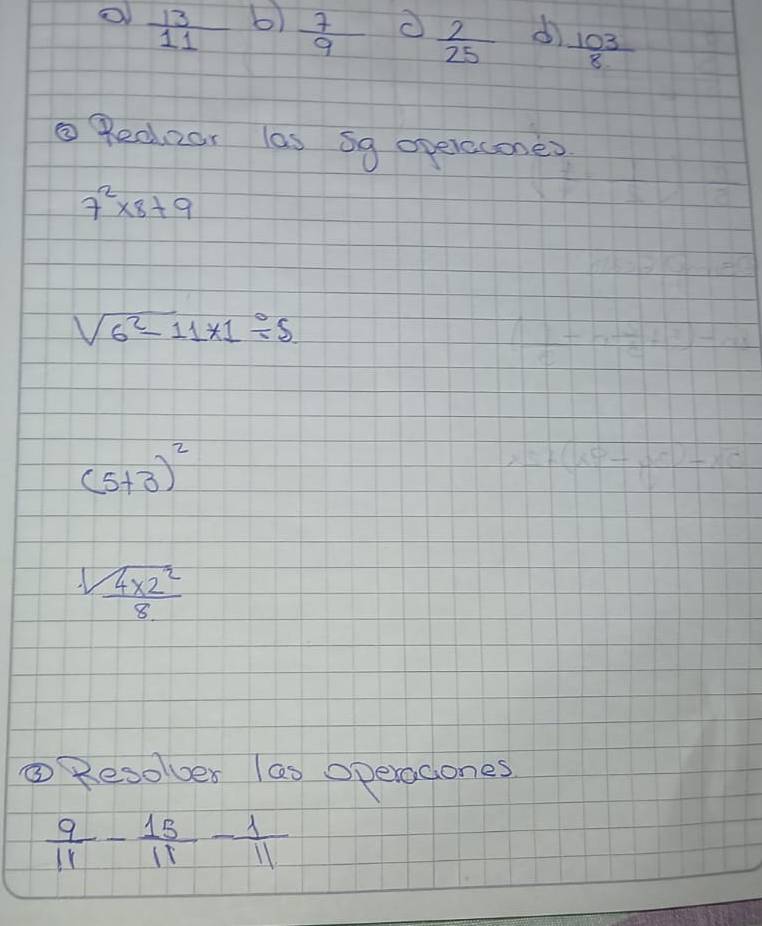 a) 13/11 b) 7/9 c) 2/25 d) 103/8
② Realizar las sg operaciones.
7² × 8 + 9
√6² - 11 × 1 ÷ 5
(5+3)²
√4×2² / 8
③ Resolver las operaciones
9/11 - 15/11 - 1/11